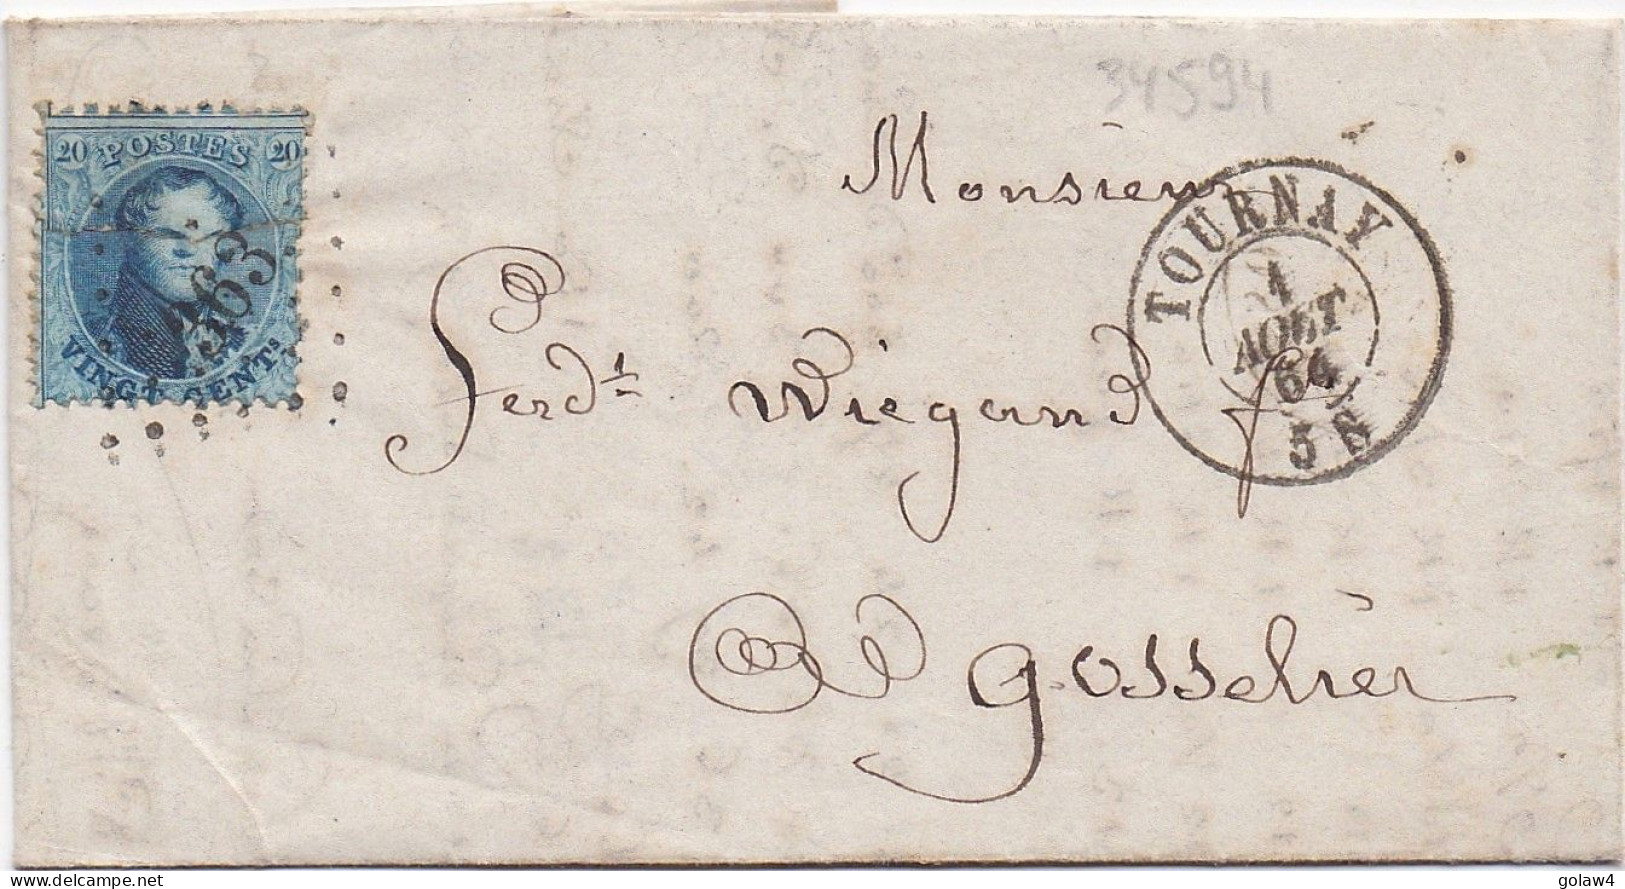 34594
20 POSTES 20
363
VINGT CENTS
Monsieur
TOURNAY
1
AOUT
64
5 S
Ferdt Wiegand f
à Gosseliés
delcampe.net
golaw4